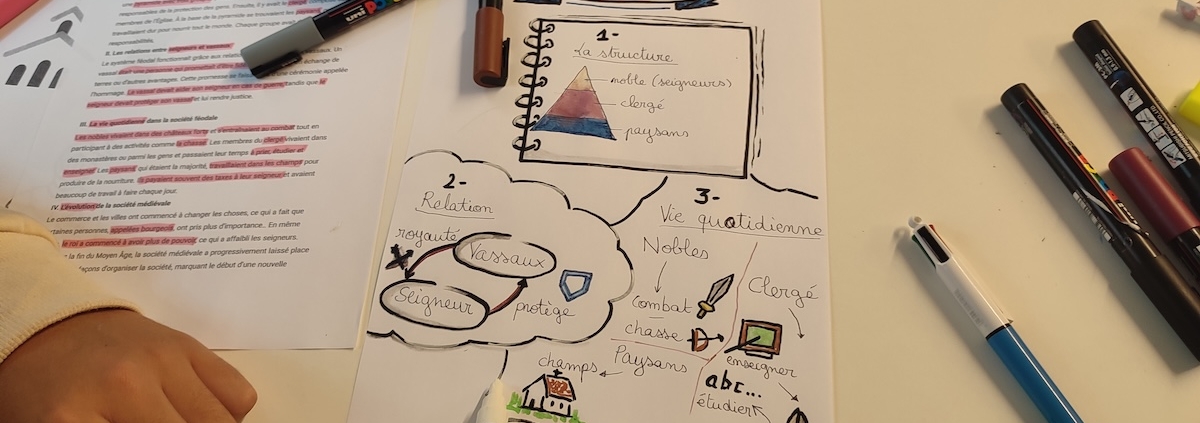 responsables de la protection des gens. Ensuite, il y avait le clergé
membres de l'Église. À la base de la pyramide se trouvaient les paysans
travaillaient dur pour nourrir tout le monde. Chaque groupe avait
responsabilités.
II. Les relations entre seigneurs et vassaux
Le système féodal fonctionnait grâce aux relations
vassal était une personne qui promettait d'être
terres ou d'autres avantages. Cette promesse se faisait une cérémonie appelée
l'hommage. Le vassal devait aider son seigneur en cas de guerre tandis que le
seigneur devait protéger son vassal et lui rendre justice.
III. La vie quotidienne dans la société féodale
Les nobles vivaient dans des châteaux forts et s'entraînaient au combat tout en
participant à des activités comme la chasse. Les membres du clergé vivaient dans
des monastères ou parmi les gens et passaient leur temps à prier, étudier et
enseigner. Les paysans, qui étaient la majorité, travaillaient dans les champs pour
produire de la nourriture. Ils payaient souvent des taxes à leur seigneur et avaient
beaucoup de travail à faire chaque jour.
IV. L'évolution de la société médiévale
Le commerce et les villes ont commencé à changer les choses, ce qui a fait que
rtaines personnes, appelées bourgeois, ont pris plus d'importance. En même
le roi a commencé à avoir plus de pouvoir, ce qui a affaibli les seigneurs.
la fin du Moyen Âge, la société médiévale a progressivement laissé place
façons d'organiser la société, marquant le début d'une nouvelle
uni POSCA
1-
La structure
noble (seigneurs)
clergé
paysans
2-
Relation
royauté
Vassaux
Seigneur
protège
3-
Vie quotidienne
Nobles
Combat
chasse
Clergé
enseigner
abc...
étudier
Paysans
champs